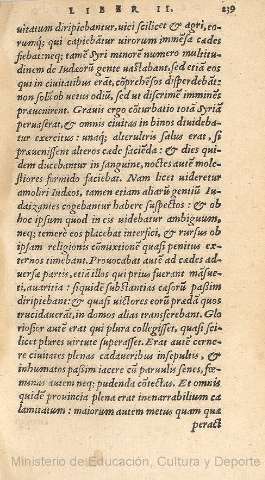 LIBER II. 239
uitatum diripiebantur, uici scilicet & agri, eo-
rumq́; qui capiebãtur uirorum immẽsa cædes
fiebat: neq; tamẽ Syri minorẽ numero multitu-
dinem de Iudæorũ gente uastabant, sed etiã eos
qui in ciuitatibus erãt, cõprehẽsos disperdebãt:
non solũ ob uetus odiũ, sed ut discrimẽ imminẽs
præuenirent. Grauis ergo cõturbatio totã Syriã
peruaserat, & omnis ciuitas in binos diuideba-
tur exercitus: unaq́; alterutris salus erat, si
præuenissent alteros cæde faciẽda: & dies qui-
dem ducebantur in sanguine, noctes autẽ mole-
stiores formido faciebat. Nam licet uideretur
amoliri Iudæos, tamen etiam aliarũ gentiũ Iu-
daizantes cogebantur habere suspectos: & ob
hoc ipsum quod in eis uidebatur ambiguum,
neq; temerè eos placebat interfici, & rursus ob
ipsam religionis cõmixtionẽ quasi penitus ex-
ternos timebant. Prouocabat autẽ ad cædes ad-
uersæ partis, etiã illos qui prius fuerant mãsue-
ti, auaritia: siquidẽ substantias cæsorũ passim
diripiebant: & quasi uictores eorũ prædã quos
trucidauerãt, in domos alias transferebant. Glo
riosior autẽ erat qui plura collegisset, quasi sci-
licet plures uirtute superasset. Erat autẽ cerne-
re ciuitates plenas cadaueribus insepultis, &
inhumatos passim iacere cũ paruulis senes, fœ-
minas autem neq; pudenda cõtectas. Et omnis
quidẽ prouincia plena erat inenarrabilium ca
lamitatum: maiorum autem metus quam quæ
peracti
Ministerio de Educación, Cultura y Deporte